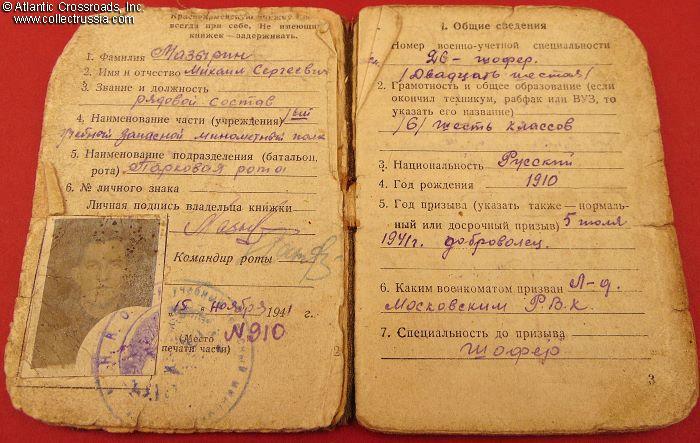 © Atlantic Crossroads, Inc.
www.collectrussia.com
Красноармейскую книжку
всегда при себе. Не имеющих
книжек — задерживать.
1. Фамилия Мазырин
2. Имя и отчество Михаил Сергеевич
3. Звание и должность
рядовой состав
4. Наименование части (учреждения) 1ый
учебной запасной минометный полк
5. Наименование подразделения (батальон,
рота) Парковая рота
6. № личного знака
Личная подпись владельца книжки
Командир роты
15 " ноября 1941 г.
N 910
(Место
печати части)
2
1. Общие сведения
Номер военно-учетной специальности
26 - шофер.
/Двадцать шестая/
2. Грамотность и общее образование (если
окончил техникум, рабфак или ВУЗ, то
указать его название)
/6/ шесть классов
3. Национальность Русский
4. Год рождения 1910
5. Год призыва (указать также — нормаль-
ный или досрочный призыв) 5 июля
1941г. доброволец.
6. Каким военкоматом призван Л-д.
Московским Р.В.К.
7. Специальность до призыва
шофер
3